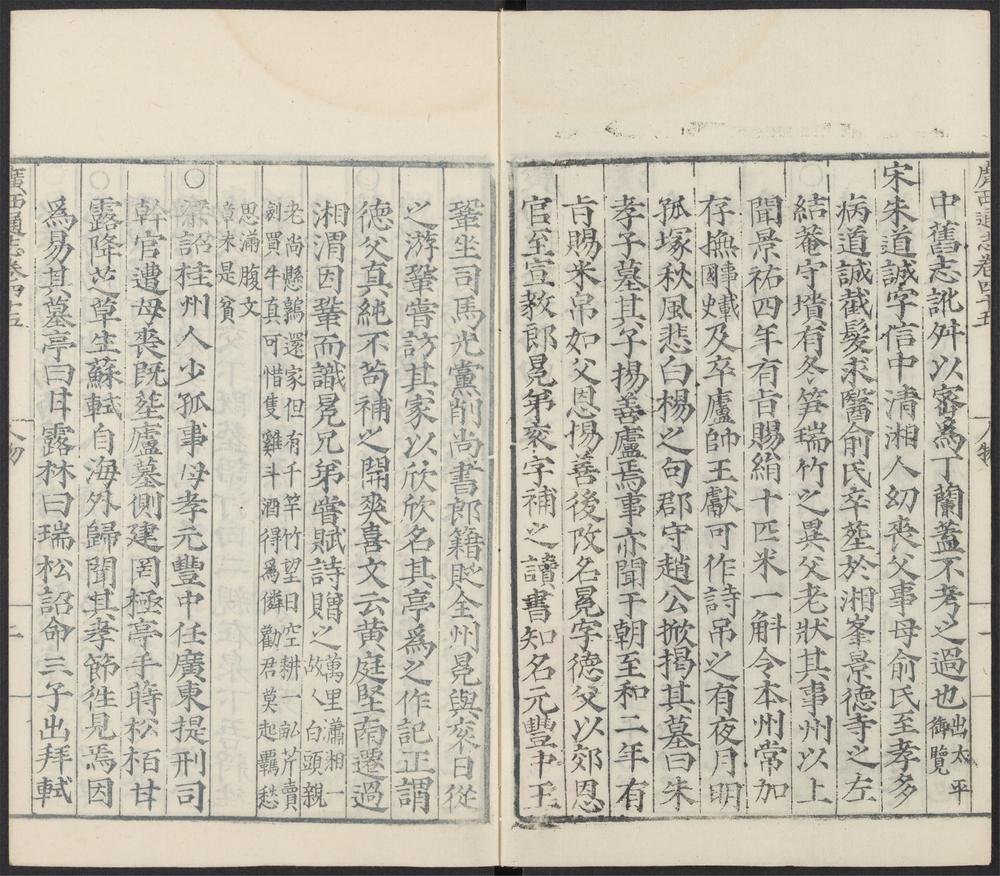 廣西通志卷四十五 人物
中舊志訛舛以審為丁蘭蓋不考之過也出太平御覽
宋朱道誠字信中清湘人幼喪父事母俞氏至孝多
病道誠截髮求醫俞氏卒塟於湘峯景德寺之左
結菴守墳有冬笋瑞竹之異父老狀其事州以上
聞景祐四年有旨賜絹十匹米一斛令本州常加
存撫事載國史及卒廬帥王獻可作詩吊之有夜月明
孤塚秋風悲白楊之句郡守趙公掀揭其墓曰朱
孝子墓其子揚善廬焉事亦聞于朝至和二年有
旨賜米帛如父恩揚善後改名冕字德父以郊恩
官至宣教郎冕弟衮字補之讀書知名元豐中王
鞏坐司馬光黨削尚書郎籍貶全州冕與衮日從
之游鞏嘗訪其家以欣欣名其亭為之作記正謂
德父真純不茍補之開爽喜文云黄庭堅南遷過
湘渭因鞏而識冕兄弟嘗賦詩贈之萬里瀟湘一故人白頭親
老尚懸鶉還家但有千竿竹望日空耕一畝芹賣
劍買牛真可惜隻雞斗酒得為隣勸君莫起羈愁
思滿腹文章未是貧
○梁詔桂州人少孤事母孝元豐中任廣東提刑司
幹官遭母喪既塟廬墓側建罔極亭手蒔松栢甘
露降芝草生蘇軾自海外歸聞其孝節徃見焉因
為易其墓亭曰甘露林曰瑞松詔命三子出拜軾
廣西通志卷四十五 人物 二